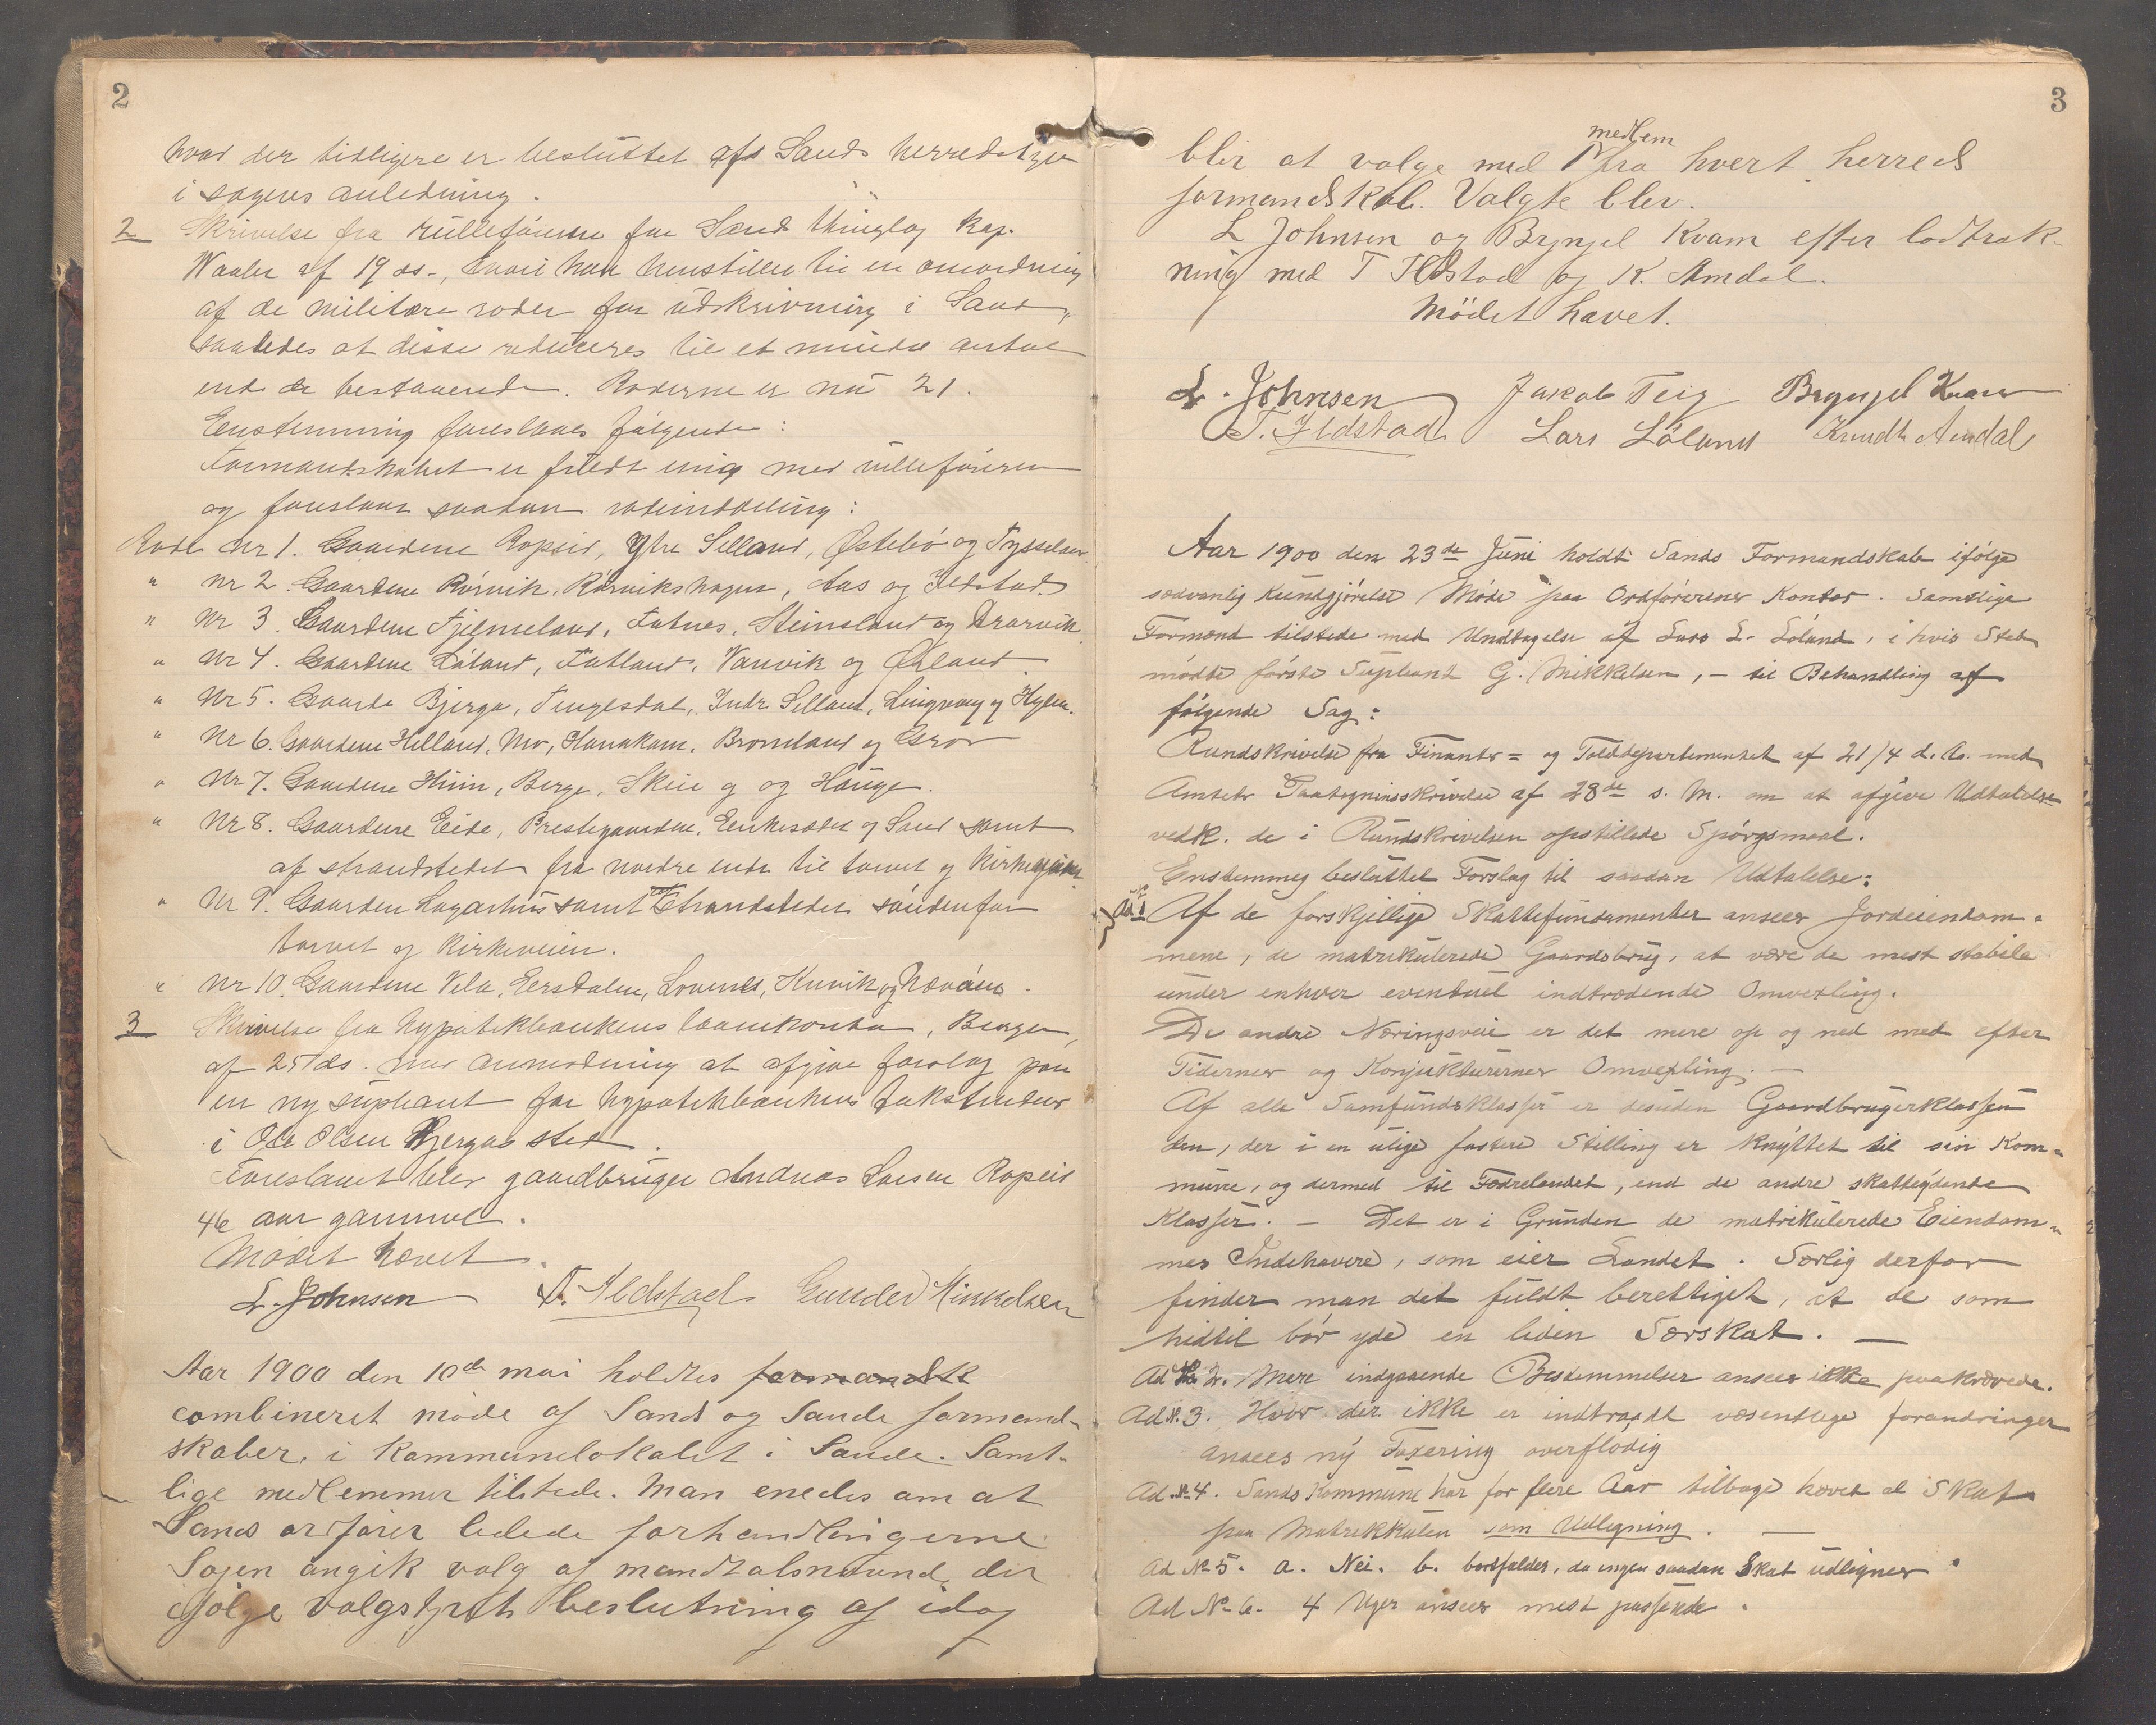 2
hvad der tidligere er besluttet af Sands herredstyre
i sagens anledning.
2 Skrivelse fra rulleføreren for Sand thinglag kap.
Waaler af 19 ds., hvori han henstiller til en omordning
af de militære roder for udskrivning i Sand,
saaledes at disse reduceres til et mindre antal
end de bestaaende. Roderne er nu 21.
Enstemming foreslaaes følgende:
Formandskabet er fuldt enig med rulleføreren
og foreslaar saadan rodeinddeling:
Rode Nr 1. Gaardene Ropeid, Ytre Selland, Østebø og Tysselsen
" Nr 2. Gaardene Rørvik, Rørvikshagen, Aas og Ildstad.
" Nr 3. Gaardene Fjelmeland, Fatnes, Steinsland og Drarvik.
" Nr 4. Gaardene Løland, Fatland, Vanvik og Øxland.
" Nr 5. Gaarde Bjerga, Tengesdal, Indr Selland, Lingvang og Hylen.
" Nr 6. Gaardene Helland, Mo, Hanakam, Bromland og Grov
" Nr 7. Gaardene Hiim, Berge, Skeie g og Hauge.
" Nr 8. Gaardene Eide, Prestegaarden, Enkesædet og Sand samt
af strandstedet fra nordre ende til torvet og kirkeveien
" Nr 9. Gaarden Lagarhus samt Strandstedet søndenfor
torvet og kirkeveien.
" Nr 10. Gaardene Vela, Eersdalen, Lovenes, Kvvik og
3 Skrivelse fra hypotekbankens laanekontor, Bergen,
af 25/ ds. med anmodning at afgive forslag paa
en ny supleant for hypotekbankens takstmænd
i Ole Olsen Bjergas sted.
Foreslaaet blev gaardbruger Andreas Larsen Ropeid
46 aar gammel.
Mødet hævet.
L. Johnsen T. Ildstad Gunder Mikkelsen
Aar 1900 den 10de mai holdtes formandsk
combineret møde af Sands og Saude formand-
skaber, i kommunelokalet i Saude. Samt-
lige medlemmer tilstede. Man enedes om at
Sands ordfører ledede forhandlingerne.
Sagen angik valg af mandtalsmænd, der
ifølge valgstyrets beslutning af idag
3
medlem
blir at vælge med 1 fra hvert herreds
formandskab. Valgte blev.
L Johnsen og Brynjel Kvam efter lodtræk-
ning med T Ildstad og K. Amdal.
Mødet hævet.
L. Johnsen Jakob Teig Brynjel Kvam
T. Ildstad Lars Løland Knudt Amdal
Aar 1900 den 23de Juni holdt Sands Formandskab ifølge
sædvanlig Kundgjørelse Møde paa Ordførerens Kontor. Samtlige
Formænd tilstede med Undtagelse af Lars L. Løland, i hvis Sted
mødte første Supleant G. Mikkelsen, – til Behandling af
følgende Sag:
Rundskrivelse fra Finants= og Tolddepartementet af 21/4 d. A. med
Amtets Paategningsskrivelse af 28de s. M. om at afgive Udtalelse
vedk. de i Rundskrivelsen opstillede Spørgsmaal.
Enstemmig besluttet Forslag til saadan Udtalelse:
Ad № 1 Af de forskjellige Skattefundamenter ansees Jordeiendom=
mene, de matrikulerede Gaardsbrug, at være de mest stabile
under enhver eventuel indtrædende Omvexling.
De andre Næringsveie er det mere op og ned med efter
Tidernes og Konjukturernes Omvexling. –
Af alle Samfundsklasser er desuden Gaardbrugerklassen
den, der i en ulige fastere Stilling er knyttet til sin Kom=
mune, og dermed til Fædrelandet, end de andre skatteydende
Klasser. – Det er i Grunden de matrikulerede Eiendom=
mes Indehavere, som eier Landet. Særlig derfor
finder man det fuldt berettiget, at de som
hidtil bør yde en liden Særskat. –
Ad № 2. Mere indgaaende Bestemmelser ansees ikke paakrævede.
Ad № 3. Hvor der ikke er indtraadt væsentlige forandringer
ansees ny Taxering overflødig
Ad. № 4. Sands Kommune har for flere Aar tilbage hævet al Skat
paa Matrikkulen som Udligning. –
Ad № 5. a. Nei. b. bortfalder, da ingen saadan Skat udlignes.
Ad № 6. 4 Uger ansees mest passende.